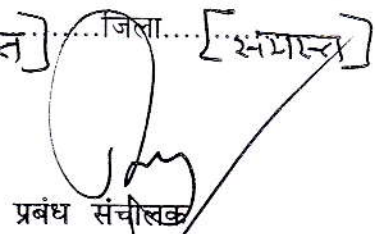 त]..........जिला..........[समस्त]
प्रबंध संचालक